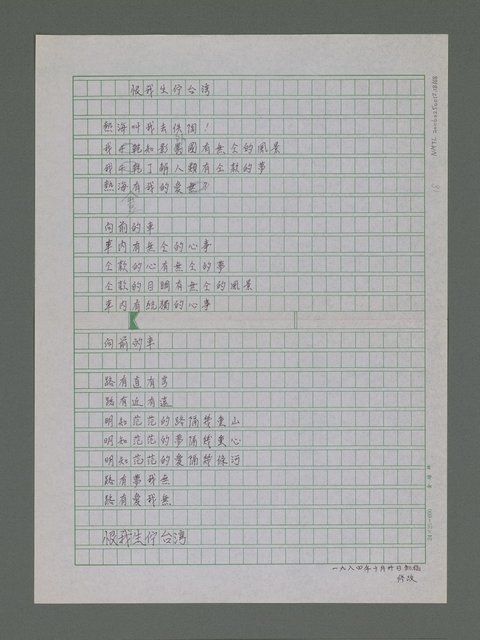 恨我生佇台湾
熱海叫我去佚陶！
我禾乾知影舊國有無仝的風景
我禾乾了解人類有仝款的夢
熱海有我的愛無？
向前的車
車内有無仝的心事
仝款的心有無仝的夢
仝款的目睭有無仝的風景
車内有純獨的心事
向前的車
路有直有弯
路有近有遠
明知茫茫的路隔幾重山
明知茫茫的夢隔幾重心
明知茫茫的愛隔幾條河
路有夢我無
路有愛我無
恨我生佇台湾
一九八四年十月廿日初稿
修改